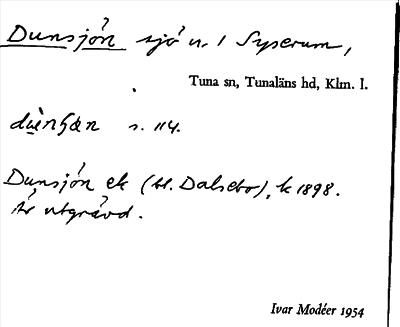 Dunsjön sjö n. 1 Syserum,
Tuna sn, Tunaläns hd, Klm. l.
s. 114.
Dunsjön ek (bl. Dalsebo), k 1898.
Är utgrävd.
Ivar Modéer 1954